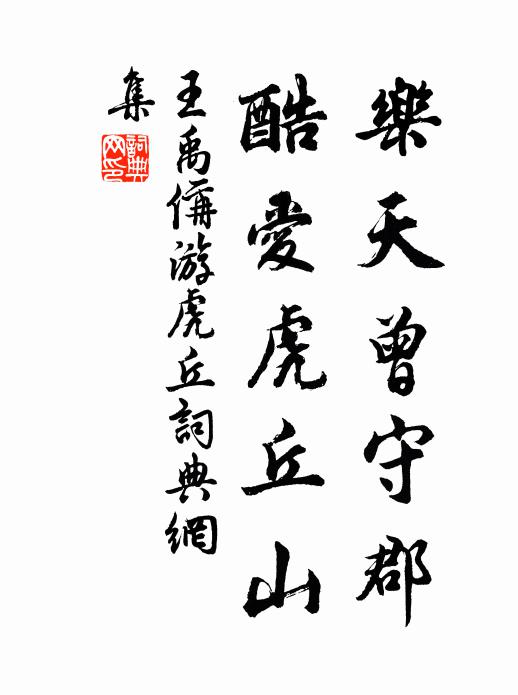 樂天曾守郡
酷愛虎丘山
王禹偁游虎丘詞典網
集
詞典
网印